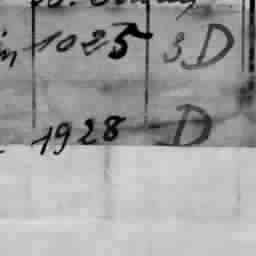 1025 3D
1928 D